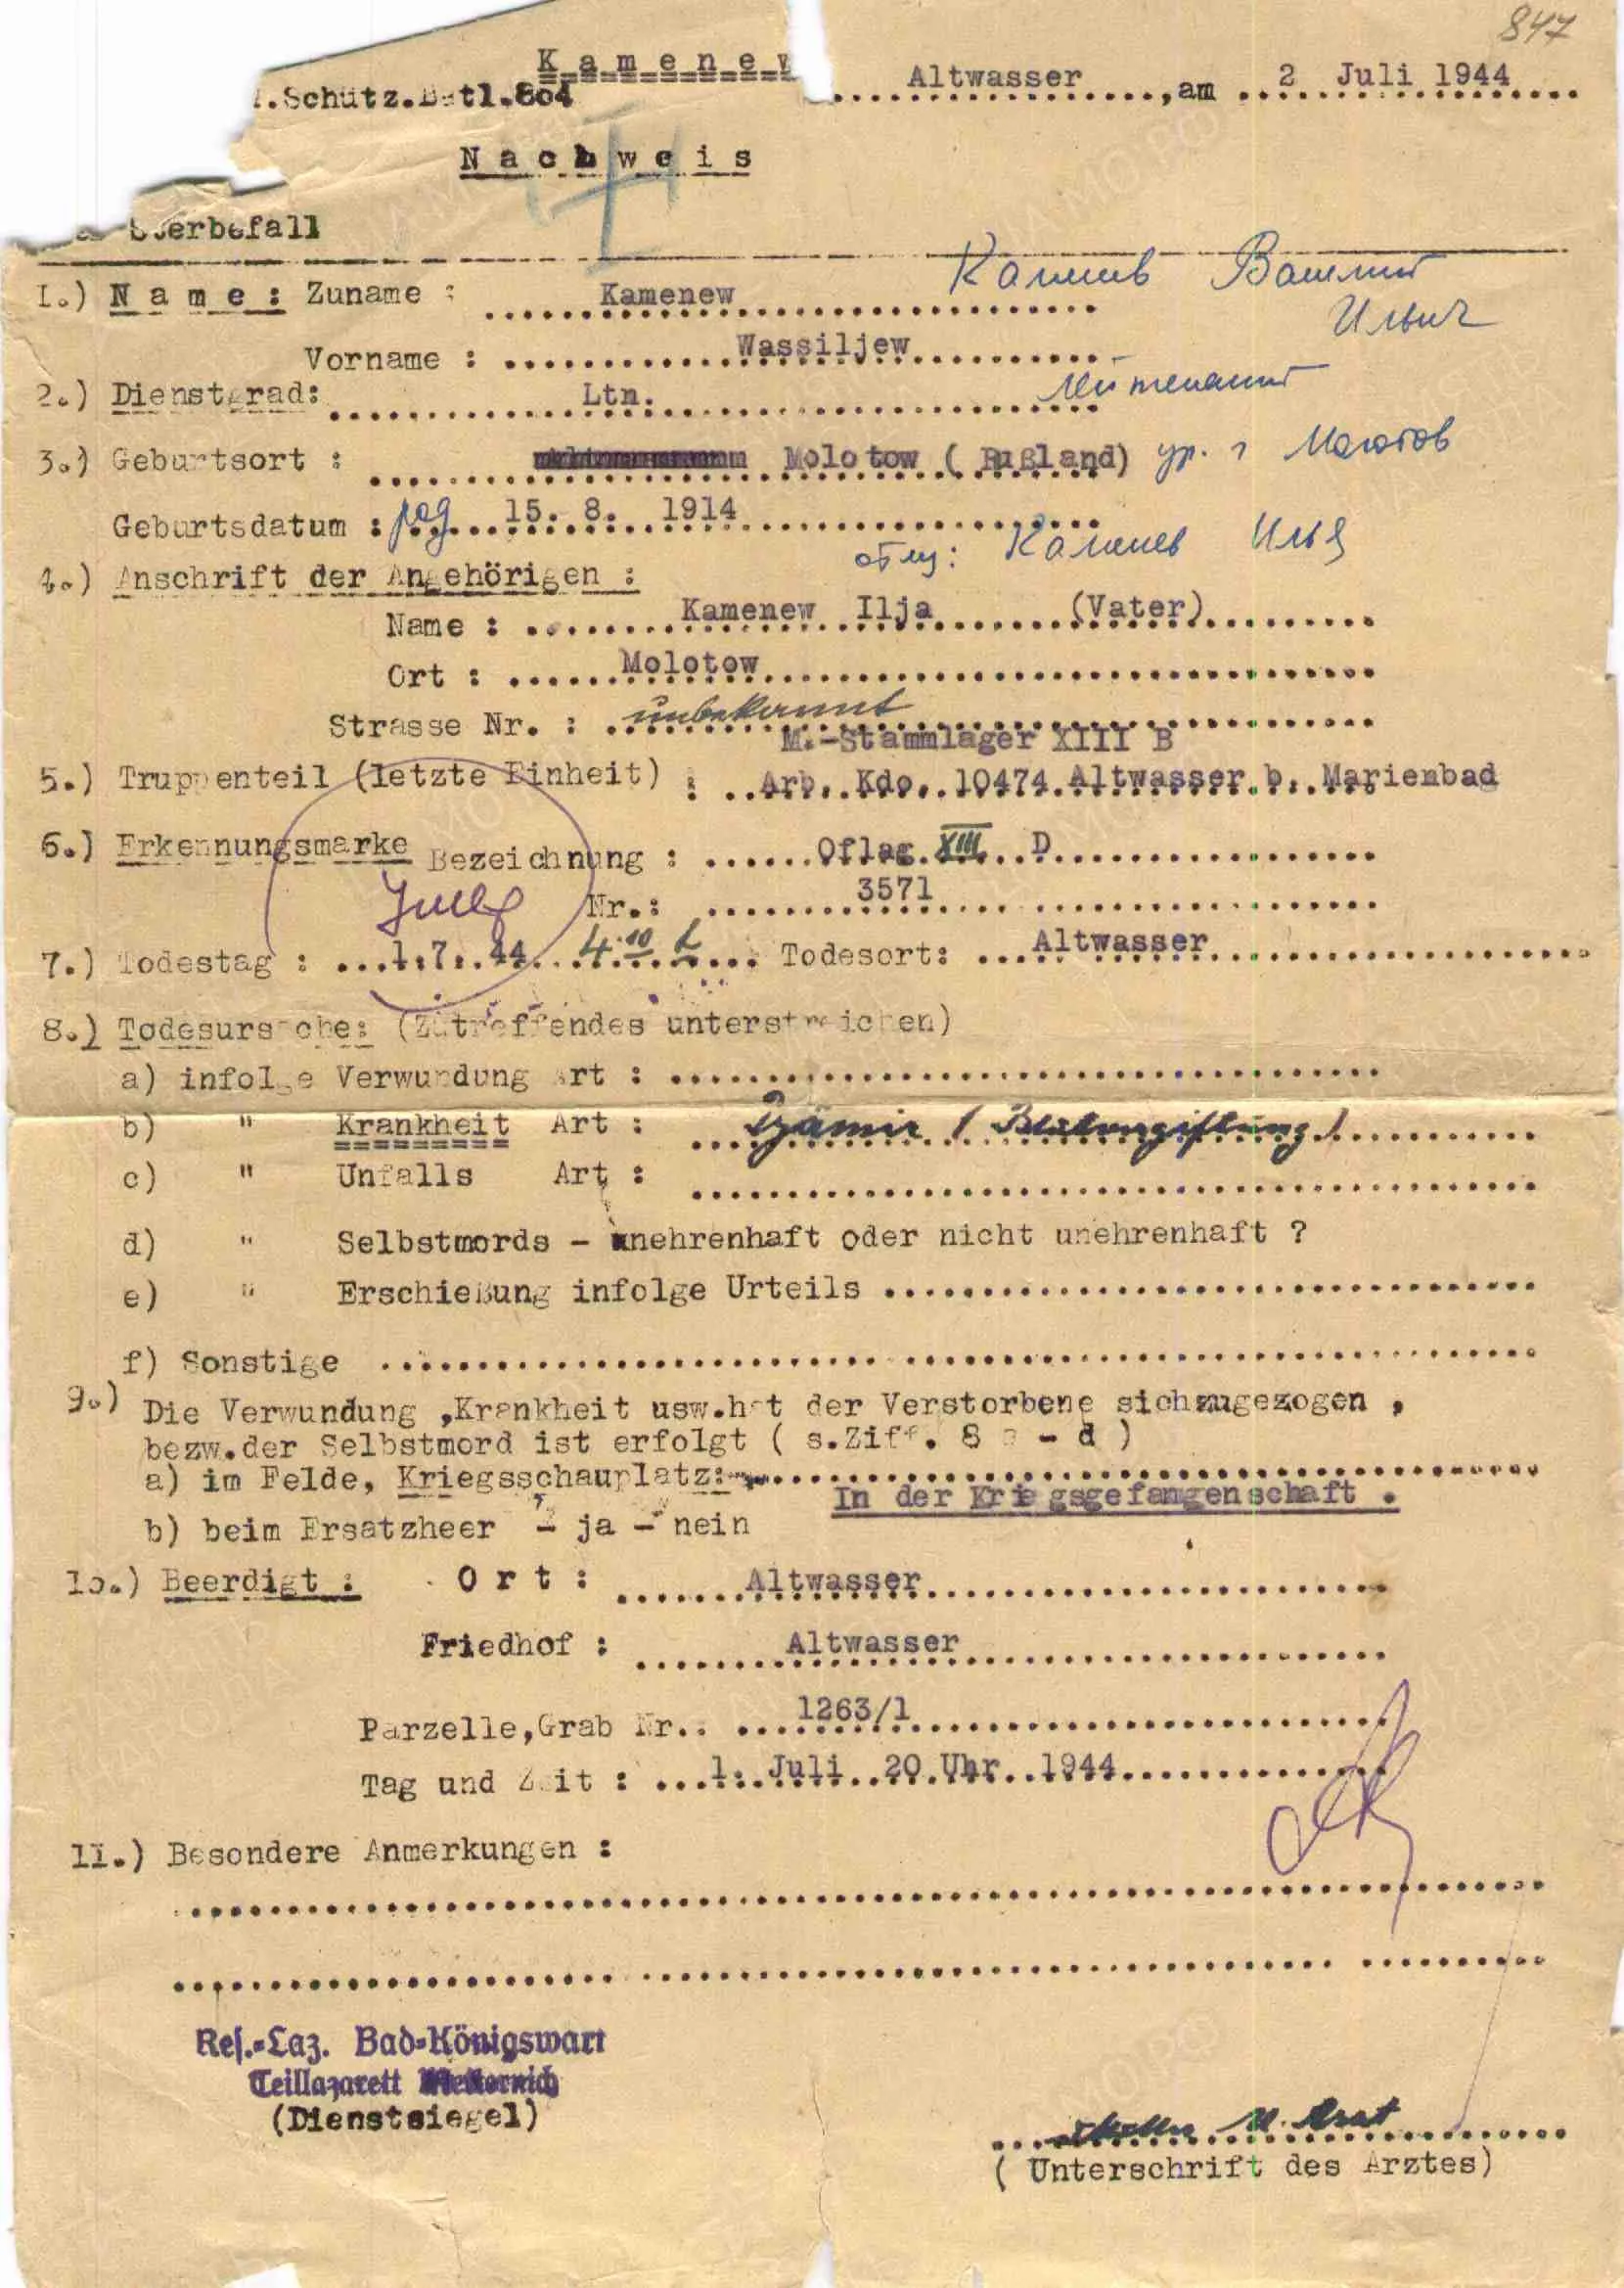 847
K a m e n e w
Altwasser , am 2 Juli 1944
.Schütz.Batl.804
N a c h w e i s
Sterbefall
1.) N a m e : Zuname : Kamenew
Каменев Василий
Ильич
Vorname : Wassiljew
2.) Dienstgrad: Ltn. лейтенант
3.) Geburtsort : Molotow ( Rußland) ур. г Молотов
Geburtsdatum : род 15. 8. 1914
отец: Каменев Илья
4.) Anschrift der Angehörigen :
Name : Kamenew Ilja (Vater)
Ort : Molotow
Strasse Nr. : unbekannt
M.-Stammlager XIII B
5.) Truppenteil (letzte Einheit) : Arb. Kdo. 10474 Altwasser b. Marienbad
6.) Erkennungsmarke Bezeichnung : Oflag XIII D
Nr.: 3571
7.) Todestag : 1.7. 44 4.10 Todesort: Altwasser
8.) Todesursache: (Zutreffendes unterstreichen)
a) infolge Verwundung Art :
b) " Krankheit Art : (Blutvergiftung)
c) " Unfalls Art :
d) " Selbstmords - unehrenhaft oder nicht unehrenhaft ?
e) " Erschießung infolge Urteils
f) Sonstige
9.) Die Verwundung ,Krankheit usw.hat der Verstorbene sichzugezogen ,
bezw.der Selbstmord ist erfolgt ( s.Ziff. 8 a - d )
a) im Felde, Kriegsschauplatz:
In der Kriegsgefangenschaft .
b) beim Ersatzheer - ja - nein
10.) Beerdigt : O r t : Altwasser
Friedhof : Altwasser
Parzelle,Grab Nr.: 1263/1
Tag und Zeit : 1. Juli 20 Uhr 1944
11.) Besondere Anmerkungen :
Res.-Laz. Bad-Königswart
Teillazarett Metternich
(Dienstsiegel)
( Unterschrift des Arztes)